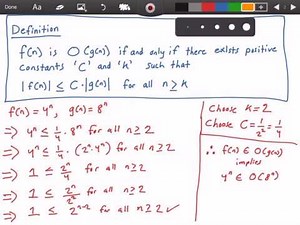 Done
Definition
f(n) is O(g(n)) if and only if there exists positive
constants 'C' and 'k' such that
|f(n)| ≤ C·|g(n)| for all n ≥ k
f(n) = 4ⁿ, g(n) = 8ⁿ
⇒ 4ⁿ ≤ 1/4 · 8ⁿ for all n ≥ 2
⇒ 4ⁿ ≤ 1/4 · (2ⁿ·4ⁿ) for all n ≥ 2
⇒ 1 ≤ 2ⁿ/4 for all n ≥ 2
⇒ 1 ≤ 2ⁿ/2² for all n ≥ 2
⇒ 1 ≤ 2ⁿ⁻² for all n ≥ 2 ✓
Choose k = 2
Choose C = 1/2² = 1/4
∴ f(n) ∈ O(g(n))
implies
4ⁿ ∈ O(8ⁿ)